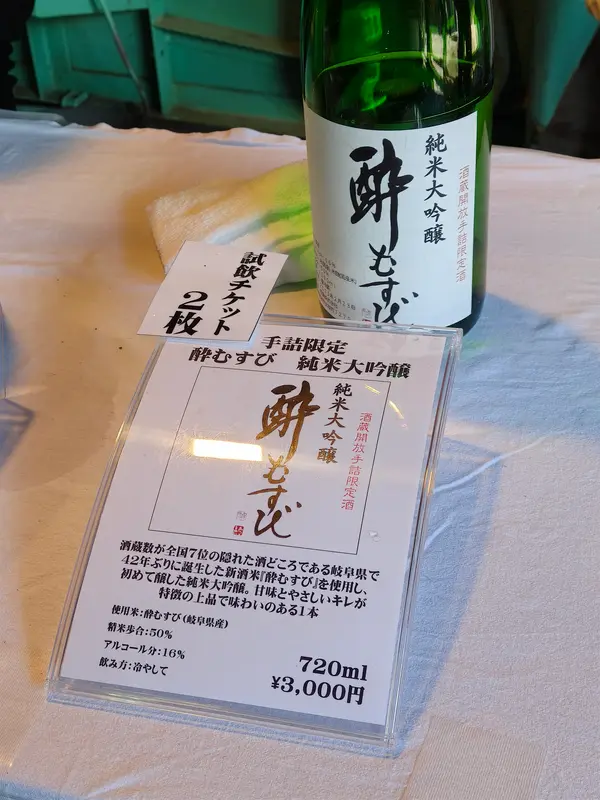 純米大吟醸
酔むすび
酒蔵開放手詰限定酒
試飲チケット
2枚
手詰限定
酔むすび 純米大吟醸
純米大吟醸
酔むすび
酒蔵開放手詰限定酒
酒蔵数が全国7位の隠れた酒どころである岐阜県で
42年ぶりに誕生した新酒米『酔むすび』を使用し、
初めて醸した純米大吟醸。甘味とやさしいキレが
特徴の上品で味わいのある1本
使用米：酔むすび（岐阜県産）
精米歩合：50%
アルコール分：16%
飲み方：冷やして
720ml
¥3,000円